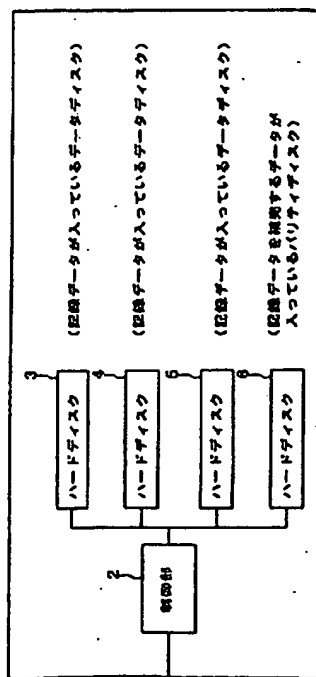 2
制御部
3
ハードディスク
(記録データが入っているデータディスク)
4
ハードディスク
(記録データが入っているデータディスク)
5
ハードディスク
(記録データが入っているデータディスク)
6
ハードディスク
(記録データを補完するデータが
入っているパリティディスク)